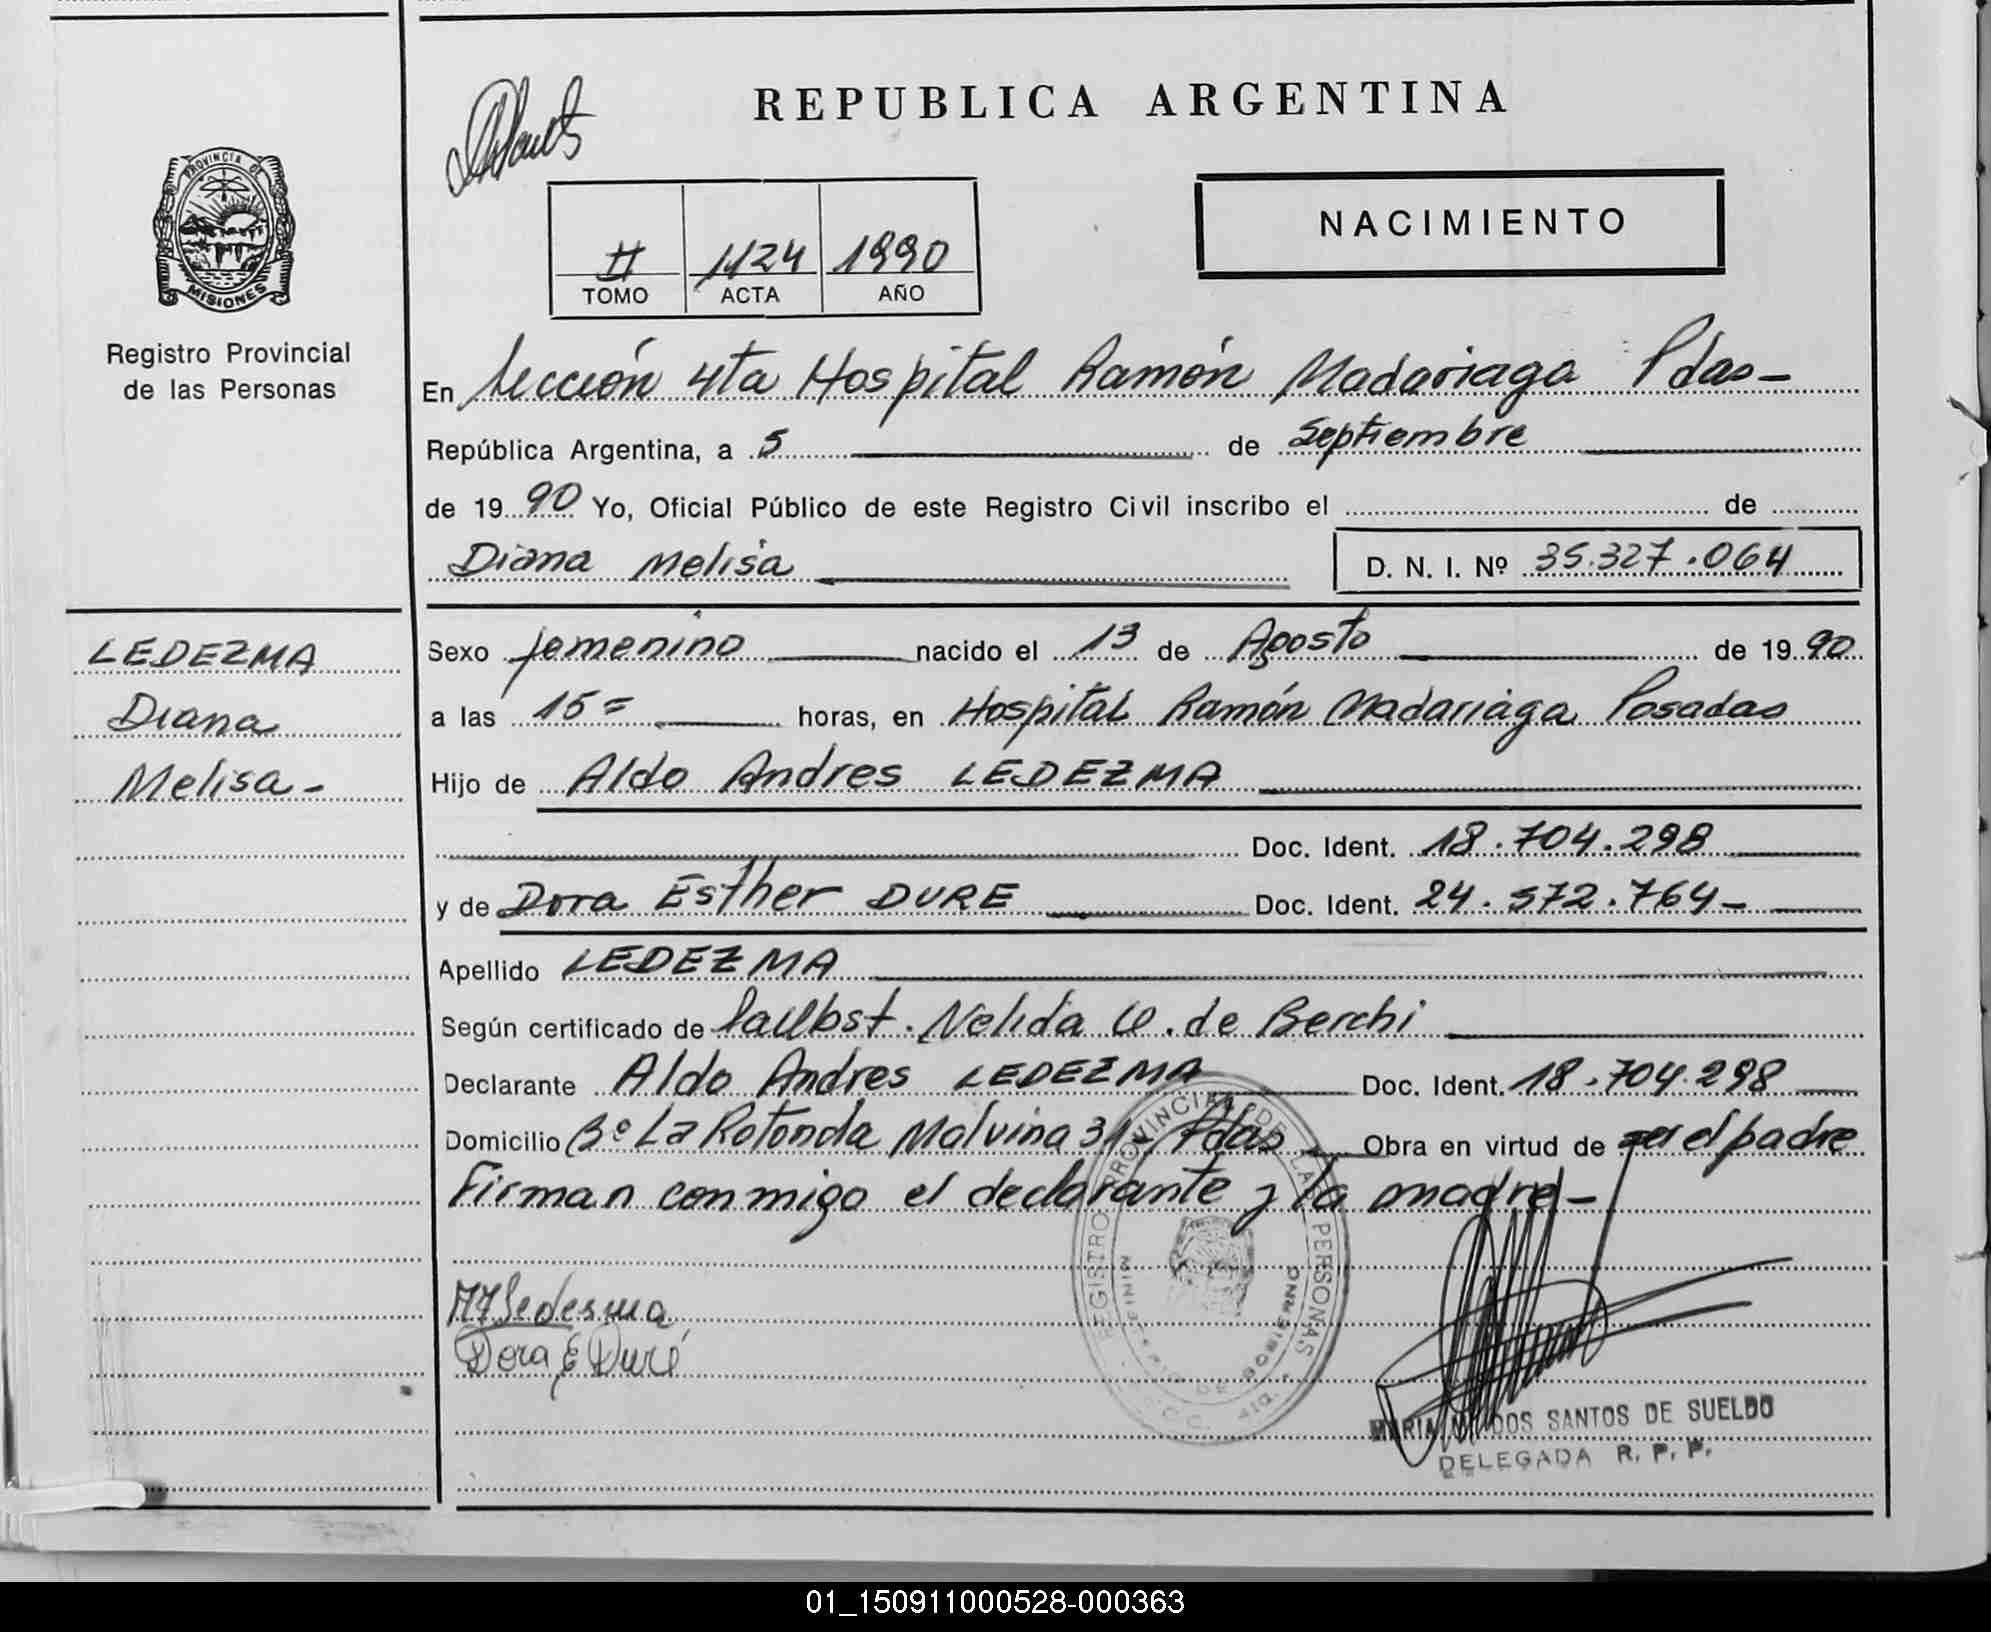 REPUBLICA ARGENTINA
PROVINCIA DE
MISIONES
Registro Provincial
de las Personas
NACIMIENTO
II 1124 1990
TOMO ACTA AÑO
En Sección 4ta Hospital Ramón Madariaga Pdas-
República Argentina, a 5 de Septiembre
de 1990 Yo, Oficial Público de este Registro Civil inscribo el de
Diana Melisa D. N. I. Nº 35.327.064
LEDEZMA
Diana
Melisa-
Sexo femenino nacido el 13 de Agosto de 1990
a las 15= horas, en Hospital Ramón Madariaga Posadas
Hijo de Aldo Andres LEDEZMA
Doc. Ident. 18.704.298
y de Dora Esther DURE Doc. Ident. 24.572.764-
Apellido LEDEZMA
Según certificado de Nelida de Berchi
Declarante Aldo Andres LEDEZMA Doc. Ident. 18.704.298
Domicilio Bº La Rotonda Malvina 31- Pdas Obra en virtud de ser el padre
Firman conmigo el declarante y la madre-
REGISTRO PROVINCIAL DE LAS PERSONAS
MINISTERIO DE GOBIERNO
Ledesma
Dora E Duré
MARIA DOS SANTOS DE SUELDO
DELEGADA R. P. P.
01_150911000528-000363